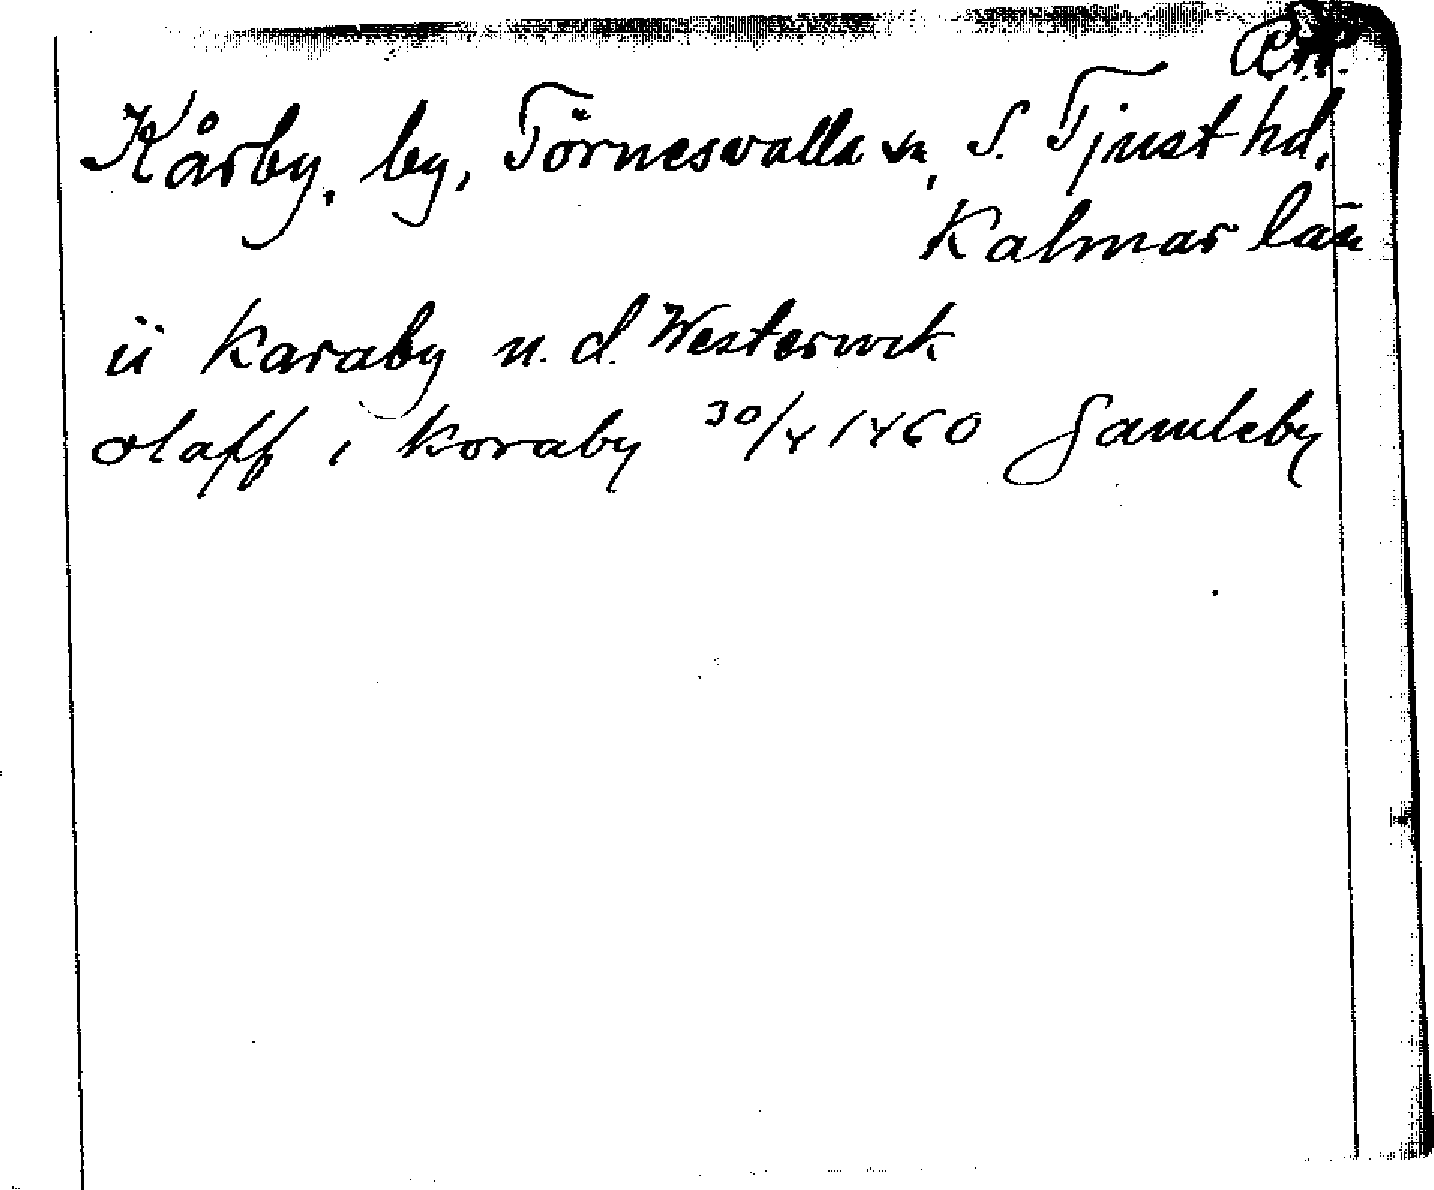 Kårby, by, Törnesvalla sn, S. Tjust hd,
Kalmar län
ii Karaby n. d. Westerwik
olaff i koraby 30/4 1460 Gamleby